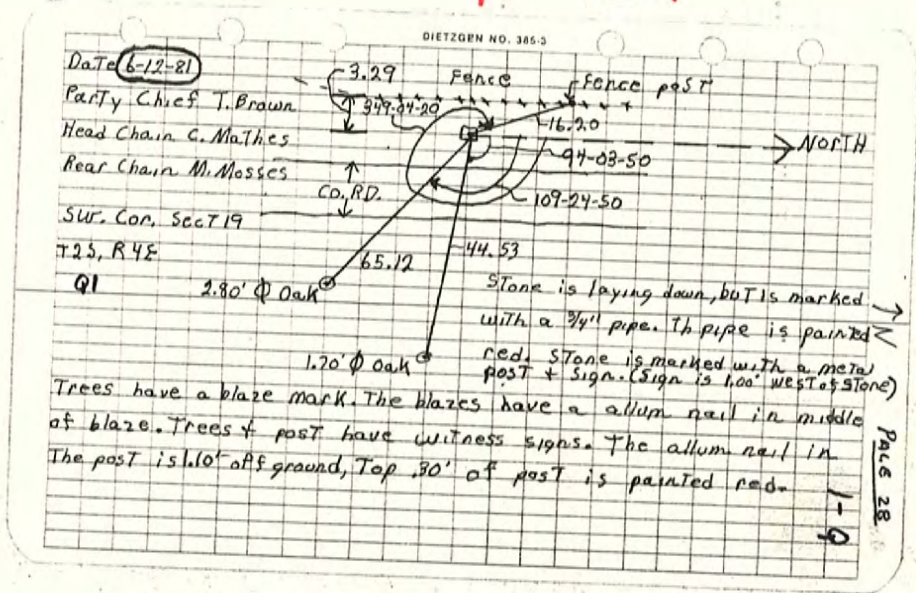 DIETZGEN NO. 385-3
DaTe 6-12-81
ParTy Chief T. Brown
Head Chain C. Mathes
Rear Chain M. Mosses
SW. Cor. SecT 19
T2S, R4E
Q1
3.29
Fence
Fence posT
349-04-20
16.20
NORTH
94-03-50
Co. RD.
109-24-50
65.12
44.53
2.80' ϕ Oak
1.70' ϕ Oak
STone is laying down, buT is marked
with a 3/4" pipe. Th pipe is painted
red. STone is marked with a metal
post + Sign. (Sign is 1.00' west of STone)
Trees have a blaze mark. The blazes have a allum nail in middle
of blaze. Trees + posT have witness signs. The allum nail in
The post is 1.10' off ground, Top .30' of posT is painted red.
N
PAGE 28